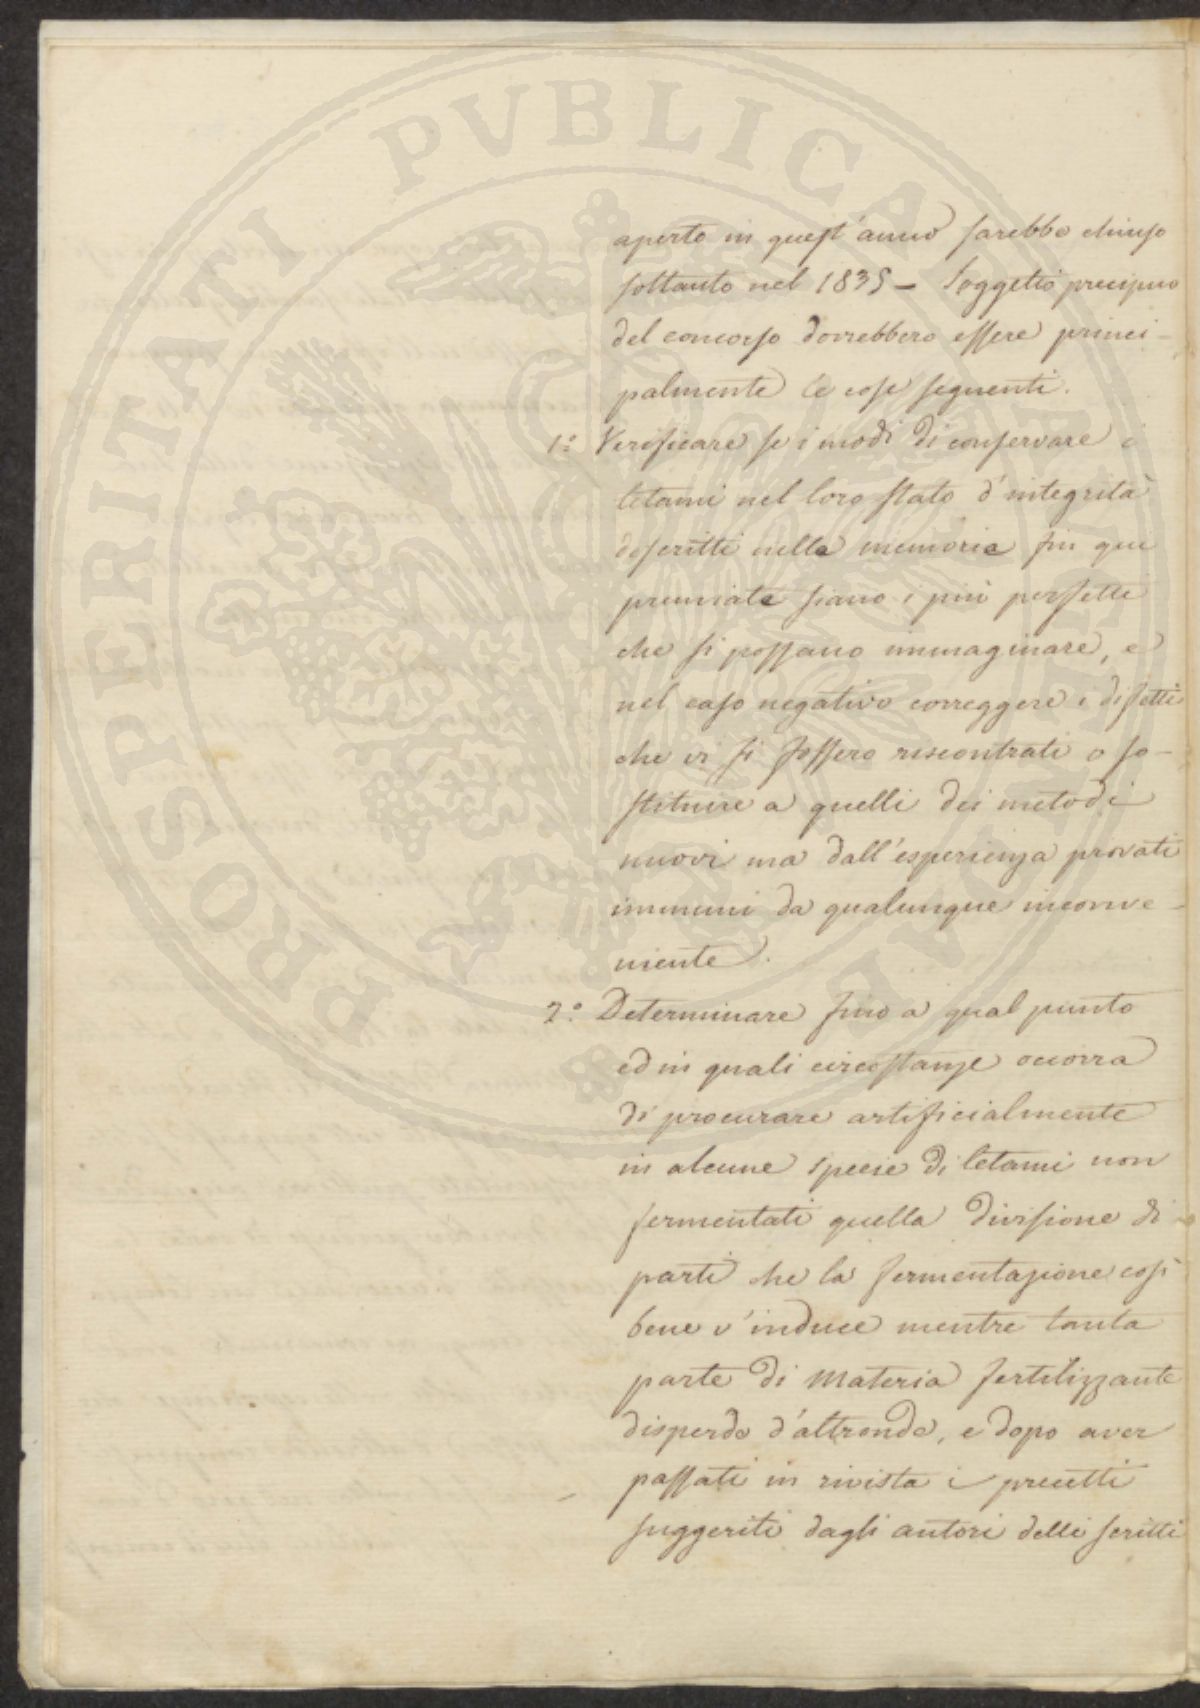 PROSPERITATI PVBLICAE AVGENDAE
aperto in quest'anno sarebbe chiuso
soltanto nel 1835 – Soggetto precipuo
del concorso dovrebbero essere princi-
palmente le cose seguenti.
1.° Verificare se i modi di conservare i
letami nel loro stato d'integrità
descritti nella memoria fin qui
premiata siano i più perfetti
che si possano immaginare, e
nel caso negativo correggere i difetti
che vi si fossero riscontrati o so-
stituire a quelli dei metodi
nuovi ma dall'esperienza provati
immuni da qualunque inconve-
niente.
2.° Determinare fino a qual punto
ed in quali circostanze occorra
di procurare artificialmente
in alcune specie di letami non
fermentati quella divisione di
parti che la fermentazione così
bene v'induce mentre tanta
parte di materia fertilizzante
disperde d'altronde, e dopo aver
passati in rivista i precetti
suggeriti dagli autori delli scritti